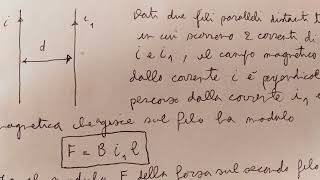 i
i₁
d
Dati due fili paralleli distanti
in cui scorrono 2 correnti di
i e i₁, il campo magnetico
dallo corrente i è perpendicol
percorso dalla corrente i₁ e
magnetica che agisce sul filo ha modulo
F = B i₁ l
modulo F della forza sul secondo filo